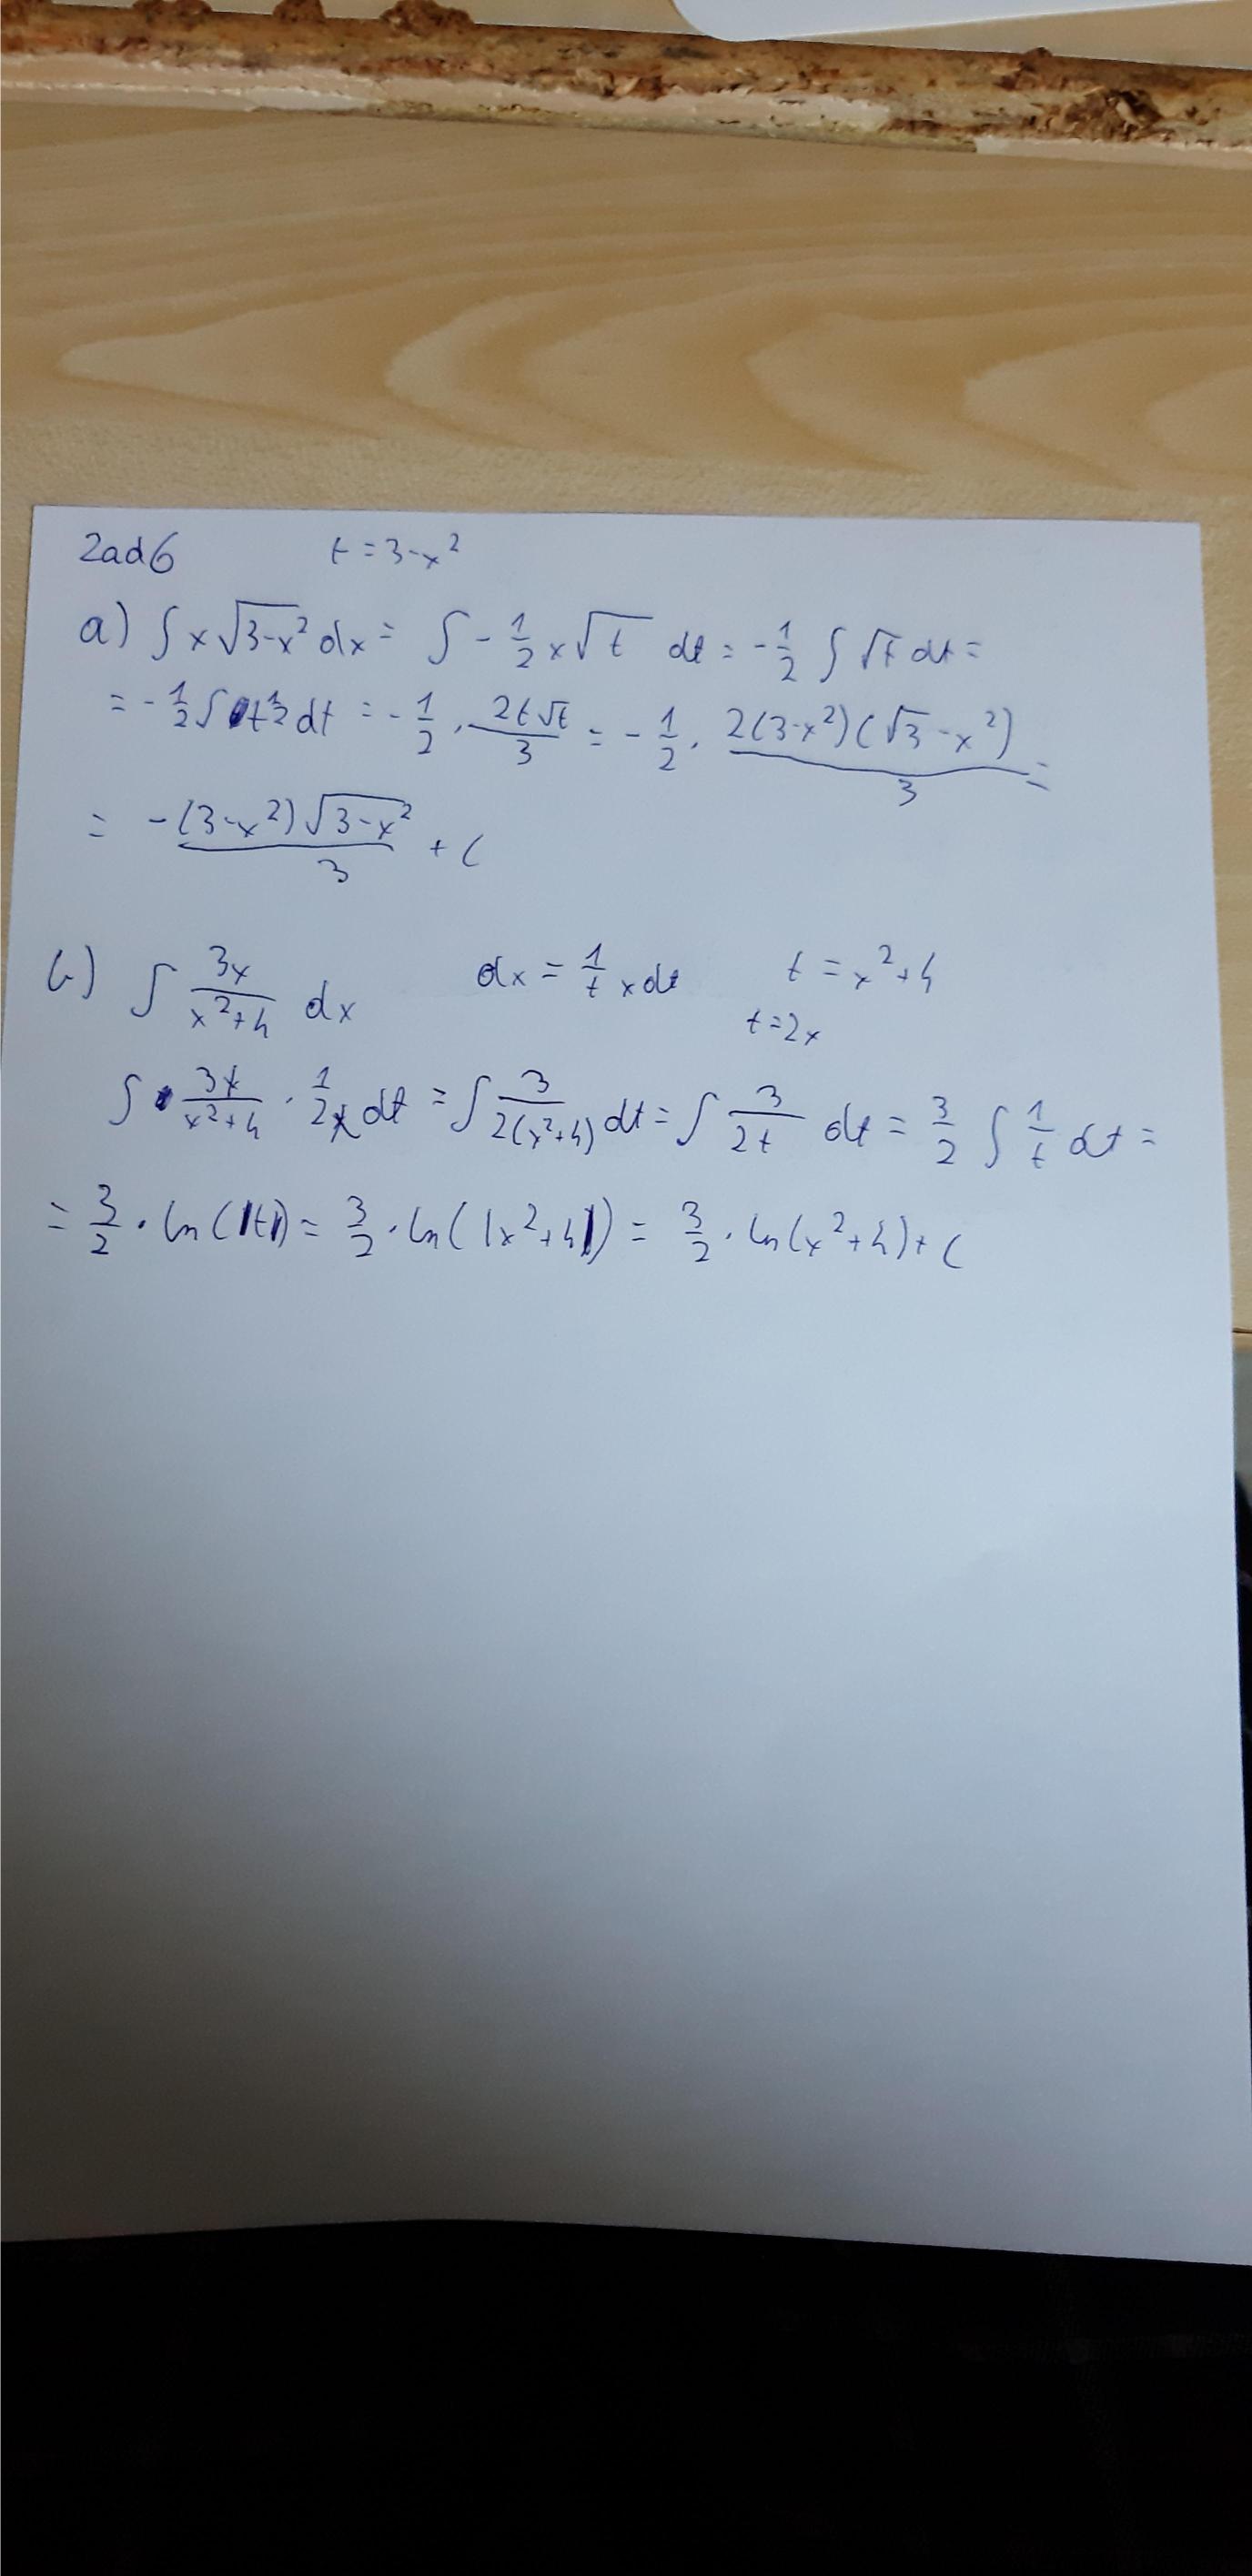 2ad6 t = 3-x²
a) ∫ x √(3-x²) dx = ∫ - 1/2 x √t dt = - 1/2 ∫ √t dt =
= - 1/2 ∫ t^(1/2) dt = - 1/2 · 2t√t/3 = - 1/2 · 2(3-x²)(√3-x²)/3 =
= -(3-x²)√(3-x²)/3 + C
b) ∫ 3x/(x²+4) dx dx = 1/t x dt t = x²+4
t=2x
∫ 3x/(x²+4) · 1/2x dt = ∫ 3/(2(x²+4)) dt = ∫ 3/2t dt = 3/2 ∫ 1/t dt =
= 3/2 · ln(|t|) = 3/2 · ln(|x²+4|) = 3/2 · ln(x²+4) + C